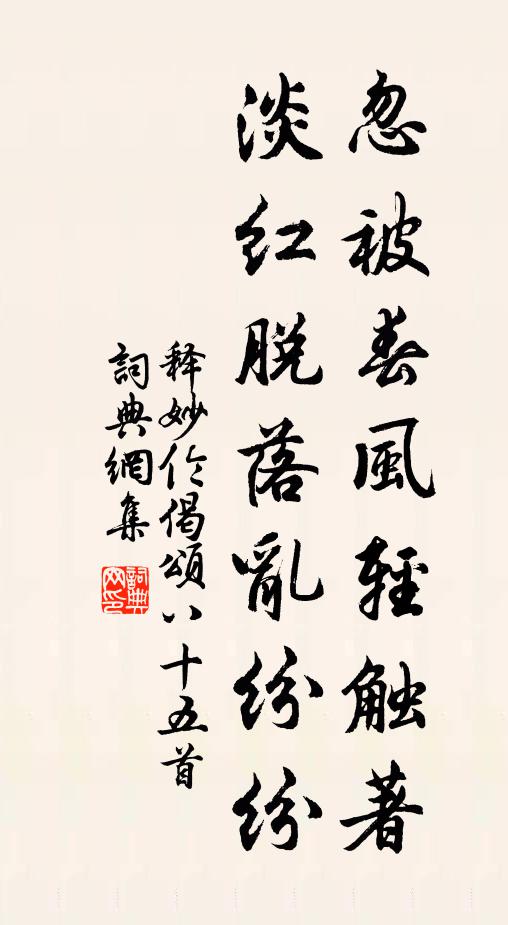 忽被春風輕触著
淡紅脱落亂紛紛
释妙伦偈頌八十五首
詞典網集
詞典網印